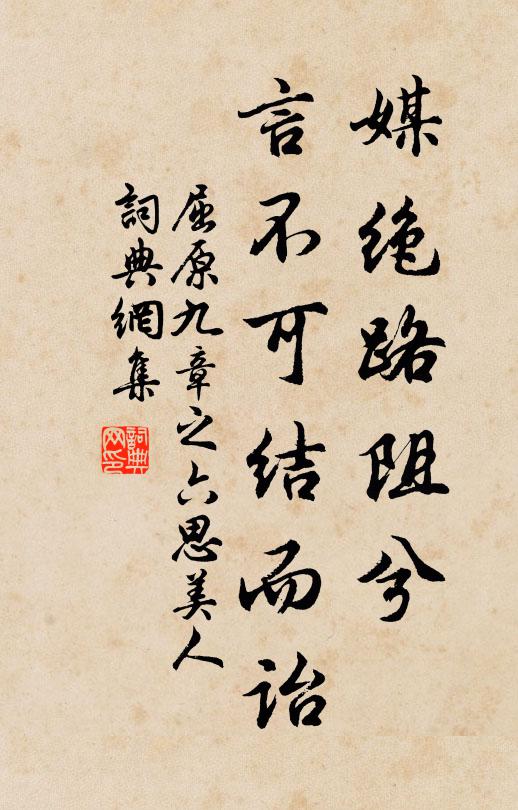 媒绝路阻兮
言不可结而诒
屈原九章之六思美人
詞典網集
詞典
网印